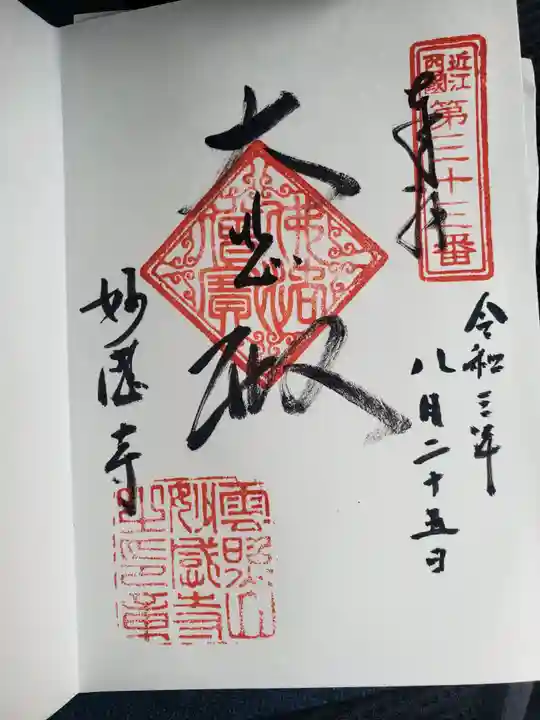 近江
西國
第三十三番
奉拝
令和三年
八月二十五日
大悲殿
佛法僧寶
妙感寺
雲照山
妙感寺
之印章